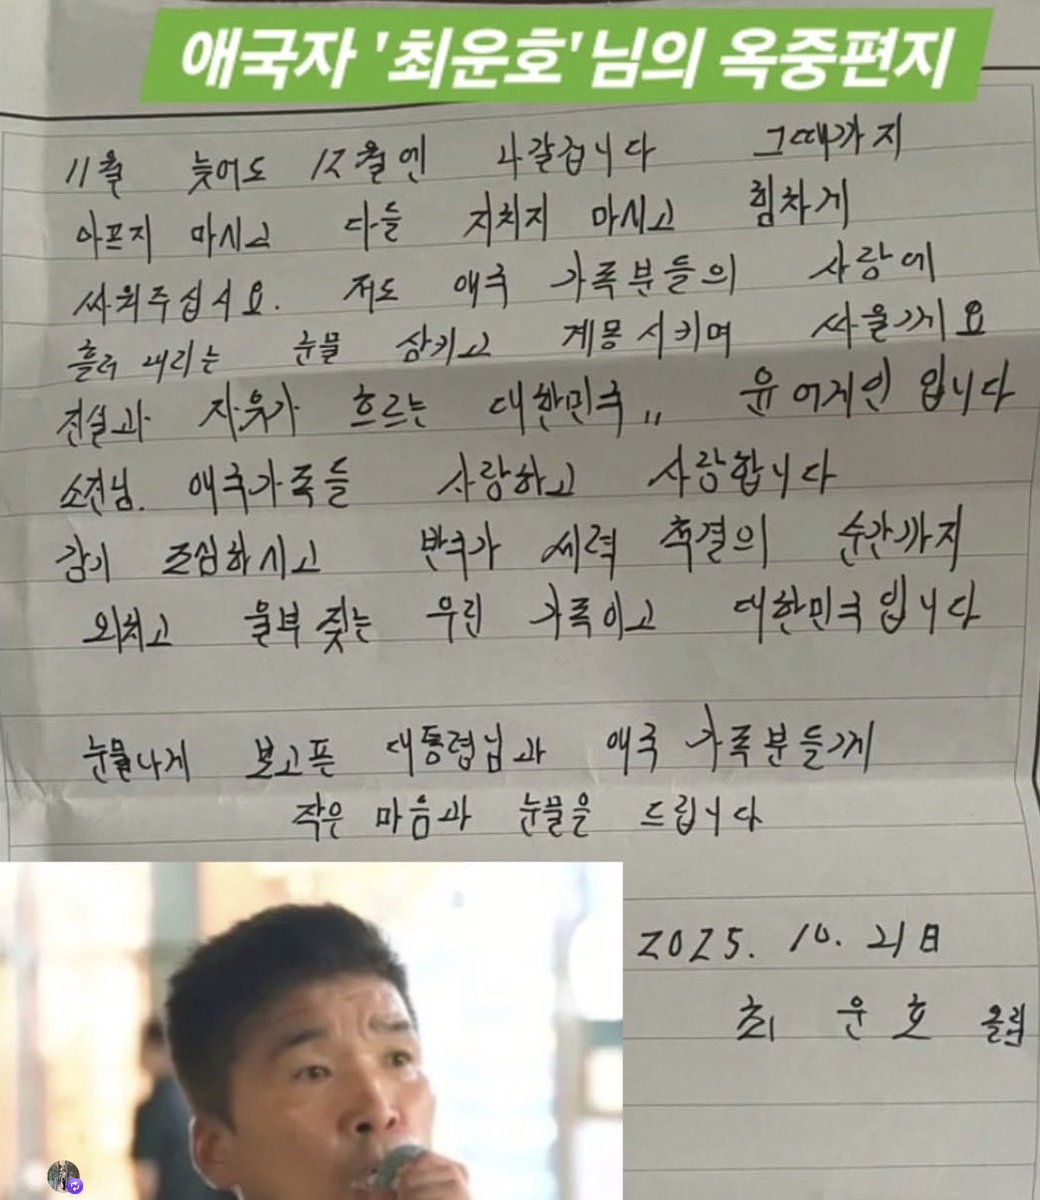 애국자 '최운호'님의 옥중편지
11월 늦어도 12월엔 나갈겁니다 그때까지
아프지 마시고 다들 지치지 마시고 힘차게
싸워주십시요. 저도 애국 가족분들의 사랑에
흘러 내리는 눈물 삼키고 계몽시키며 싸울게요
진실과 자유가 흐르는 대한민국,, 윤 어게인 입니다
소전님. 애국가족들 사랑하고 사랑합니다
감기 조심하시고 반국가 세력 척결의 순간까지
외치고 울부 짖는 우린 가족이고 대한민국입니다
눈물나게 보고픈 대통령님과 애국 가족분들게
작은 마음과 눈물을 드립니다
2025. 10. 21日
최 운 호 올림